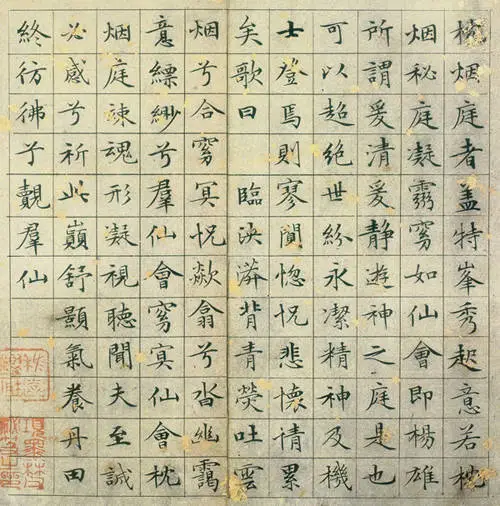 枕烟庭者盖特峯秀起意若枕
烟秘庭凝靈窅如仙會即楊雄
所謂爰清爰静遊神之庭是也
可以超絕世紛永潔精神及機
士登焉則寥闃惚怳悲懷情累
矣歌曰 臨泱漭背青熒吐雲
烟兮合窅冥怳欻翕兮沓幽靄
意縹緲兮羣仙會窅冥仙會枕
烟庭竦魂形凝視聽聞夫至誠
必感兮祈此巔舒顥氣養丹田
終彷彿兮覿羣仙